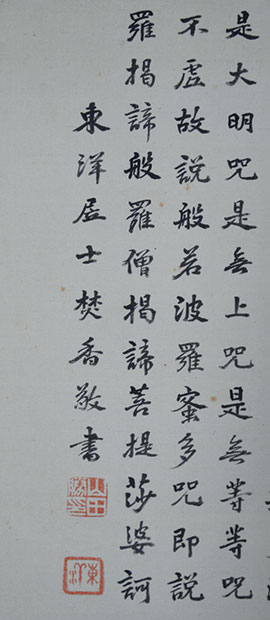 是大明咒是無上咒是無等等咒
不虛故說般若波羅蜜多咒即說
羅揭諦般羅僧揭諦菩提莎婆訶
東洋居士焚香敬書